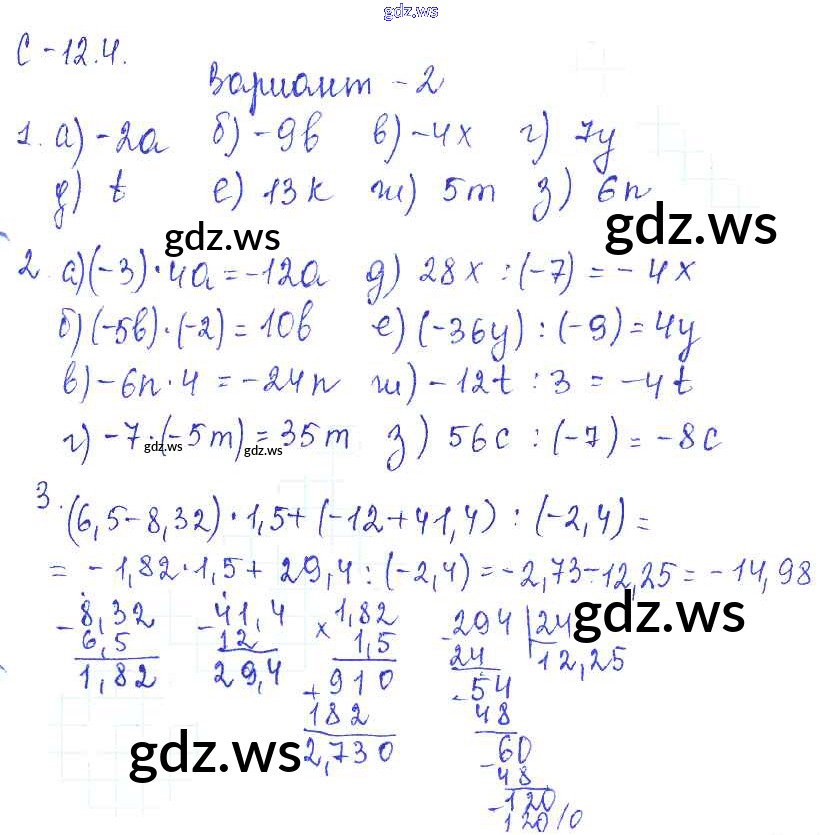 gdz.ws
С-12.4.
Вариант -2
1. а) -2a б) -9b в) -4x г) 7y
д) t е) 13k ж) 5m з) 6n
gdz.ws
gdz.ws
2. а) (-3)·4a = -12a д) 28x : (-7) = -4x
б) (-5b)·(-2) = 10b е) (-36y) : (-9) = 4y
в) -6n·4 = -24n ж) -12t : 3 = -4t
г) -7·(-5m) = 35m з) 56c : (-7) = -8c
gdz.ws
gdz.ws
3. (6,5-8,32)·1,5+(-12+41,4) : (-2,4) =
= -1,82·1,5+ 29,4 : (-2,4) = -2,73-12,25 = -14,98
gdz.ws
-8,32 -41,4 ×1,82 -294 |24
6,5 12 1,5 24 12,25
1,82 29,4 +910 -54
182 48
2,730 -60
gdz.ws
48
-120
120/0